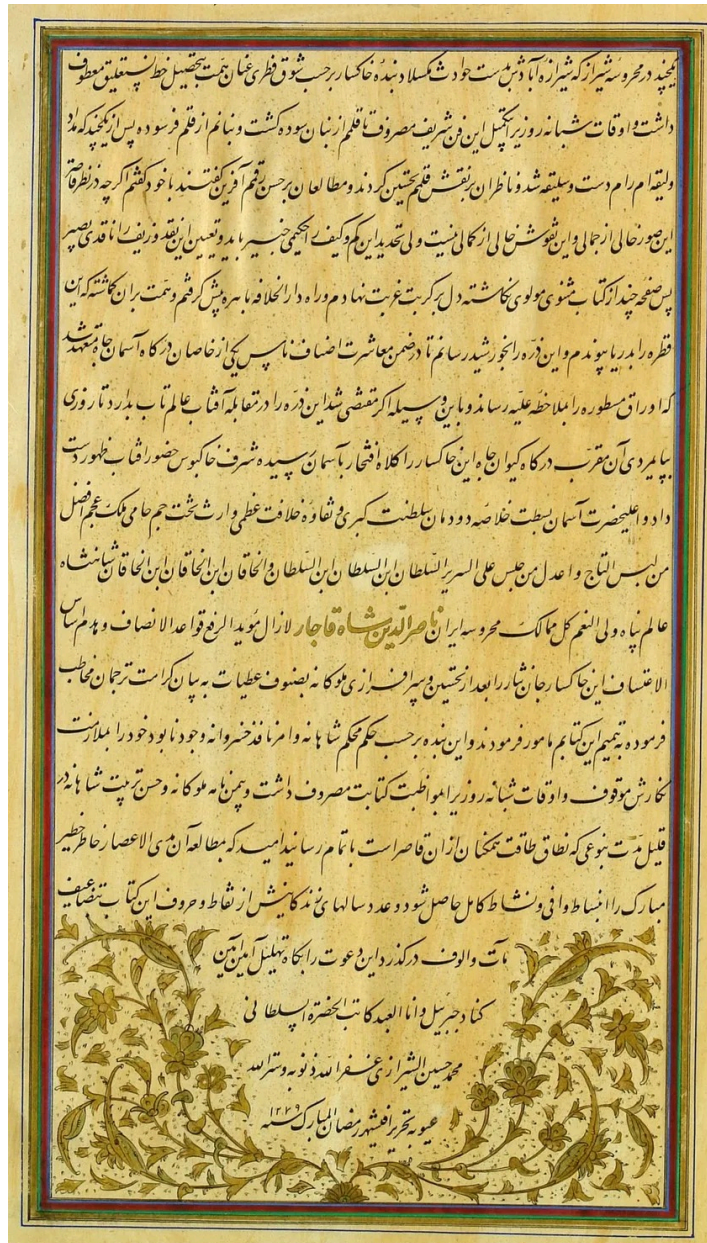 یکچند در محروسه شیراز که شیرازه آبادش بدست حوادث مگسلاد بنده خاکسار برحسب شوق فطری عنان همت بتحصیل خط نستعلیق معطوف
داشت و اوقات شبانه روز برا تکمیل این فن شریف مصروف تا قلم از بنان سوده کشت و بنانم از قلم فرسوده پس از یکچند که مداد
ولیقه ام رام دست و سلیقه شد و ناظران بر نقش قلمم تحسین کردند و مطالعان بر حسن رقمم آفرین کفتند با خود کفتم اکرچه در نظر قاصر
این صور خالی از جمالی و این نقوش خالی از کمالی نیست ولی تحدید این کم و کیف را حکیمی خبیر باید و تعیین این نقد و زیف را ناقدی بصیر
پس صفحه چند از کتاب مثنوی مولوی نکاشته دل بر کربت غربت نهادم و راه دار الخلافه باهره پیش کرفتم و همت بران کماشته که این
قطره را بدریا پیوندم و این ذره را بخورشید رسانم تا در ضمن معاشرت اصناف ناس یکی از خاصان درکاه آسمان جاه متعهد شد
که اوراق مسطوره را بملاحظه علیه رساند و باین وسیله اکر مقتضی شد این ذره را در مقابله آفتاب عالم تاب بدارد تا روزی
بپایمردی آن مقرب درکاه کیوان جاه این خاکسار را کلاه افتخار بآسمان رسیده شرف خاکبوس حضور افتاب ظهور دست
داد و اعلیحضرت آسمان بسطت خلاصه دودمان سلطنت کبری و نقاوه خلافت عظمی وارث تخت جم حامی ملک عجم افضل
من لبس التاج و اعدل من جلس علی السریر السلطان ابن السلطان ابن السلطان و الخاقان ابن الخاقان ابن الخاقان شاهنشاه
عالم پناه ولی النعم کل ممالک محروسه ایران ناصر الدین شاه قاجار لازال مویدا لرفع قواعد الانصاف و هدم اساس
الاعتساف این خاکسار جان نثار را بعد از تحسین و سرافرازی ملوکانه بصنوف عطیات به بیان کرامت ترجمان مخاطب
فرموده به تتمیم این کتابم مامور فرمودند و این بنده برحسب حکم محکم شاهانه و امر نافذ خسروانه وجود نابود خود را بملازمت
نکارش موقوف و اوقات شبانه روز برا بمواظبت کتابت مصروف داشت و بیمن هانه ملوکانه و حسن تربیت شاهانه در
قلیل مدت بنوعی که نطاق طاقت همکنان ازان قاصر است باتمام رسانید امید که مطالعه آن مدی الاعصار خاطر خطیر
مبارک را انبساط وافی و نشاط کامل حاصل شود و عدد سالهای زندکانیش از نقاط و حروف این کتاب بتضاعیف
مآت و الوف درکذرد این دعوت را بکاه تهلیل آمین آمین
کناد جبرییل و انا العبد کاتب الحضرة السلطانی
محمد حسین الشیرازی غفر الله ذنوبه و ستر الله
عیوبه تحریرا فی شهر رمضان المبارک سنه